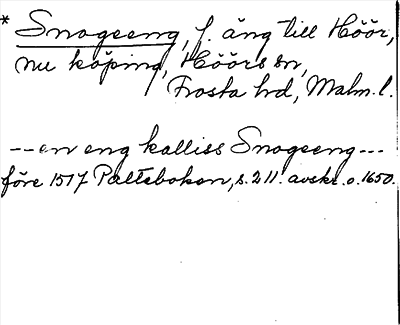 * Snogeeng, f. äng till Höör,
nu köping, Höörs sn,
Frosta hd, Malm. l.
--- en eng kalliss Snogeeng ---
före 1517 Paltebokan, s. 211. avskr. o. 1650.